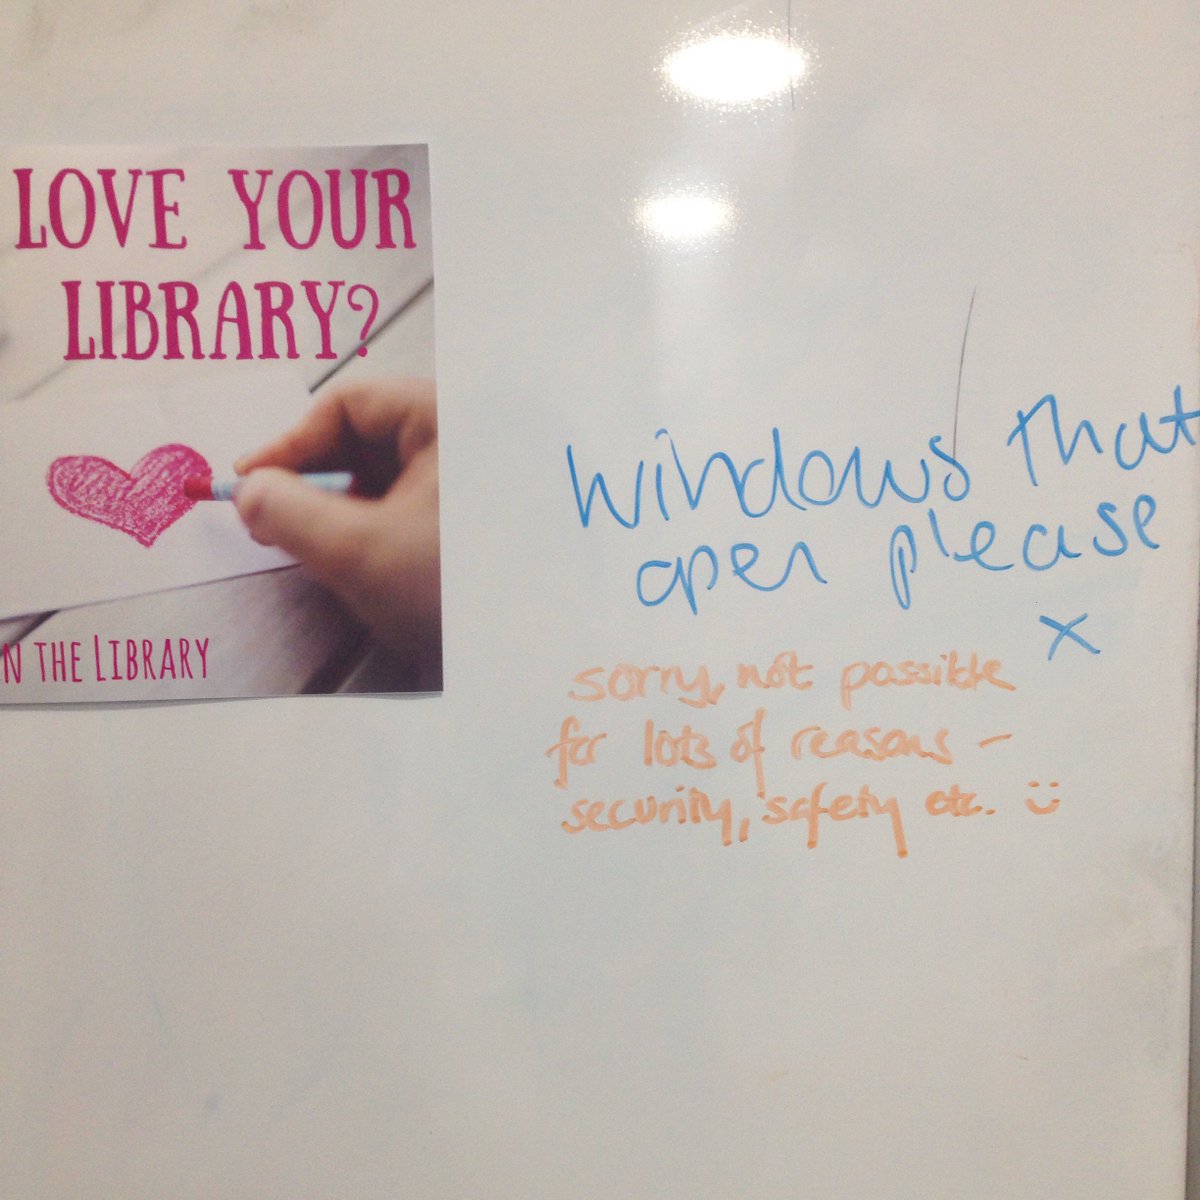 LOVE YOUR
LIBRARY?
N THE LIBRARY
windows that
open please
x
sorry, not possible
for lots of reasons -
security, safety etc. :)